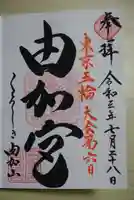 奉拝
令和三年七月二十八日
東京五輪大会第六日
由加宮
くらしき由加山